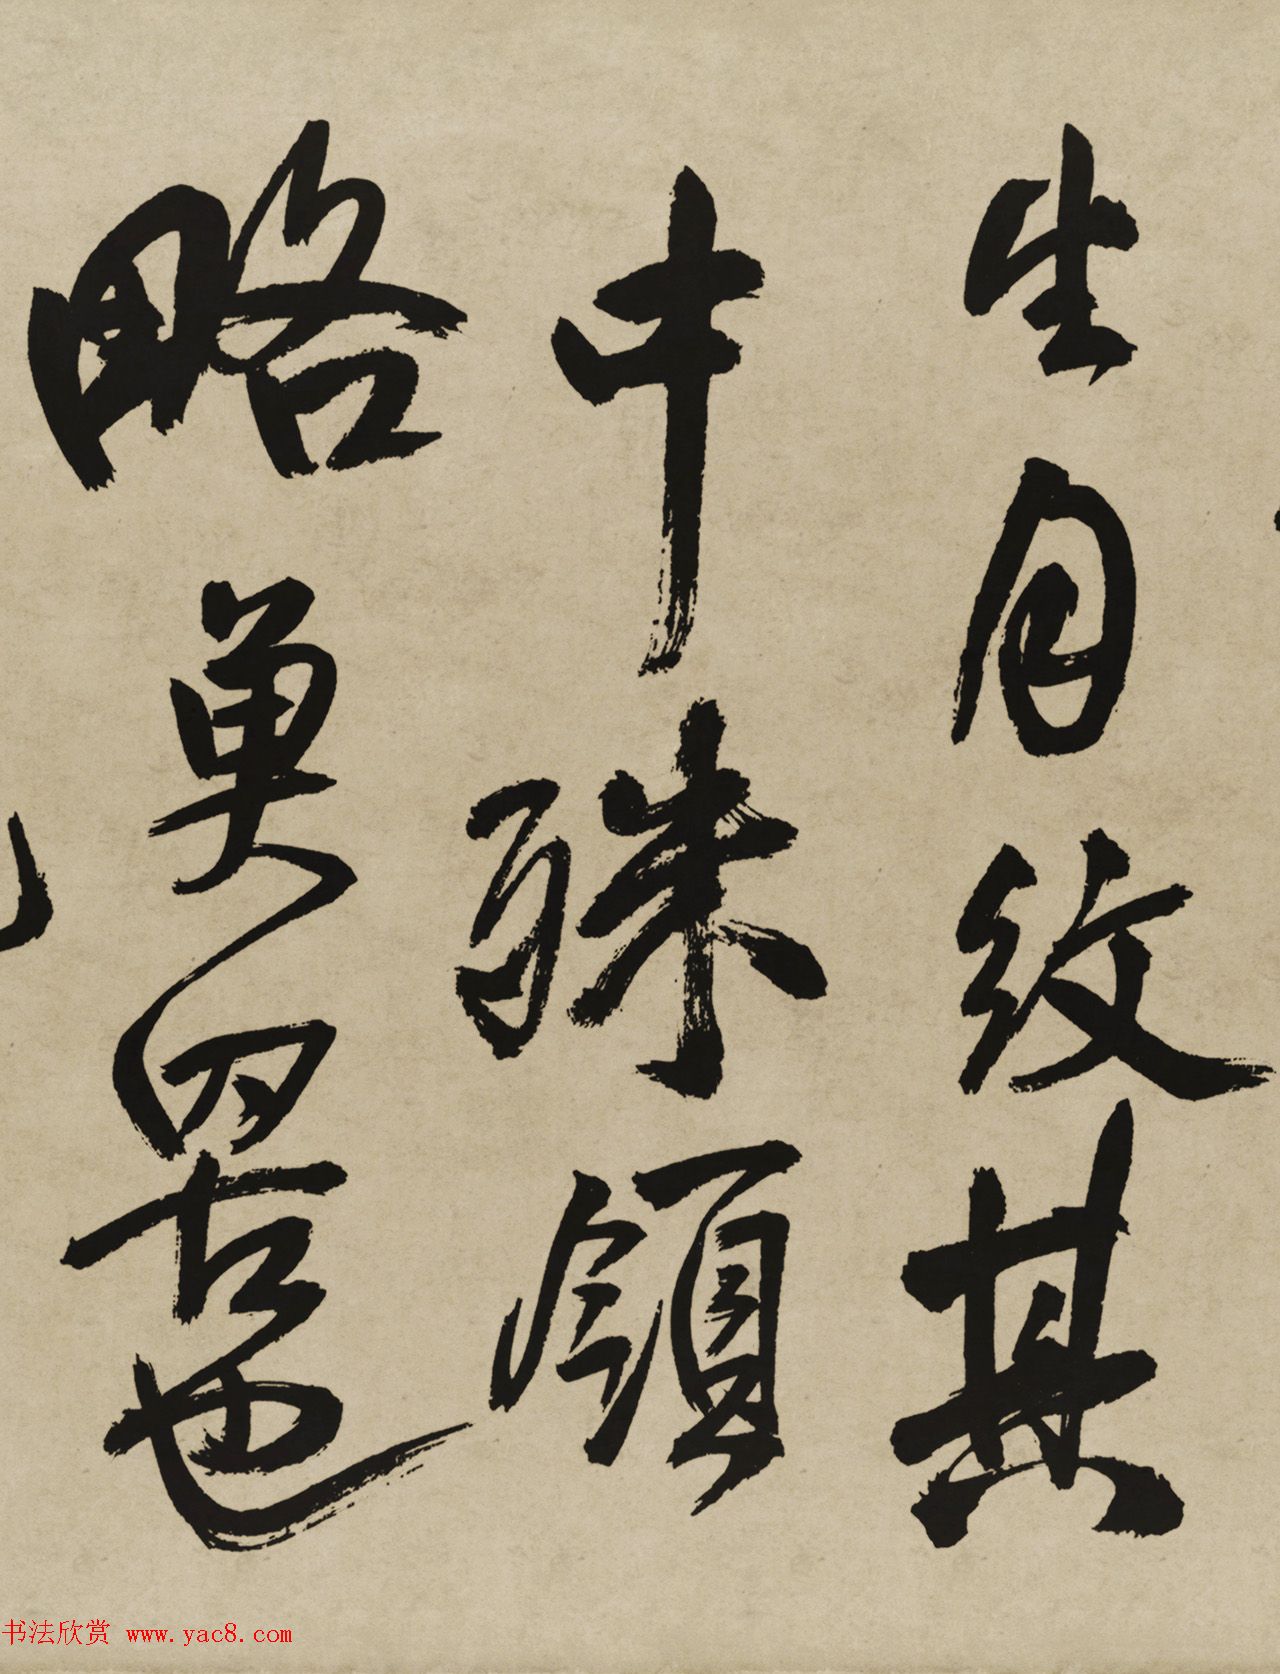 生自紋其
中殊領
略莫罢也
书法欣赏 www.yac8.com